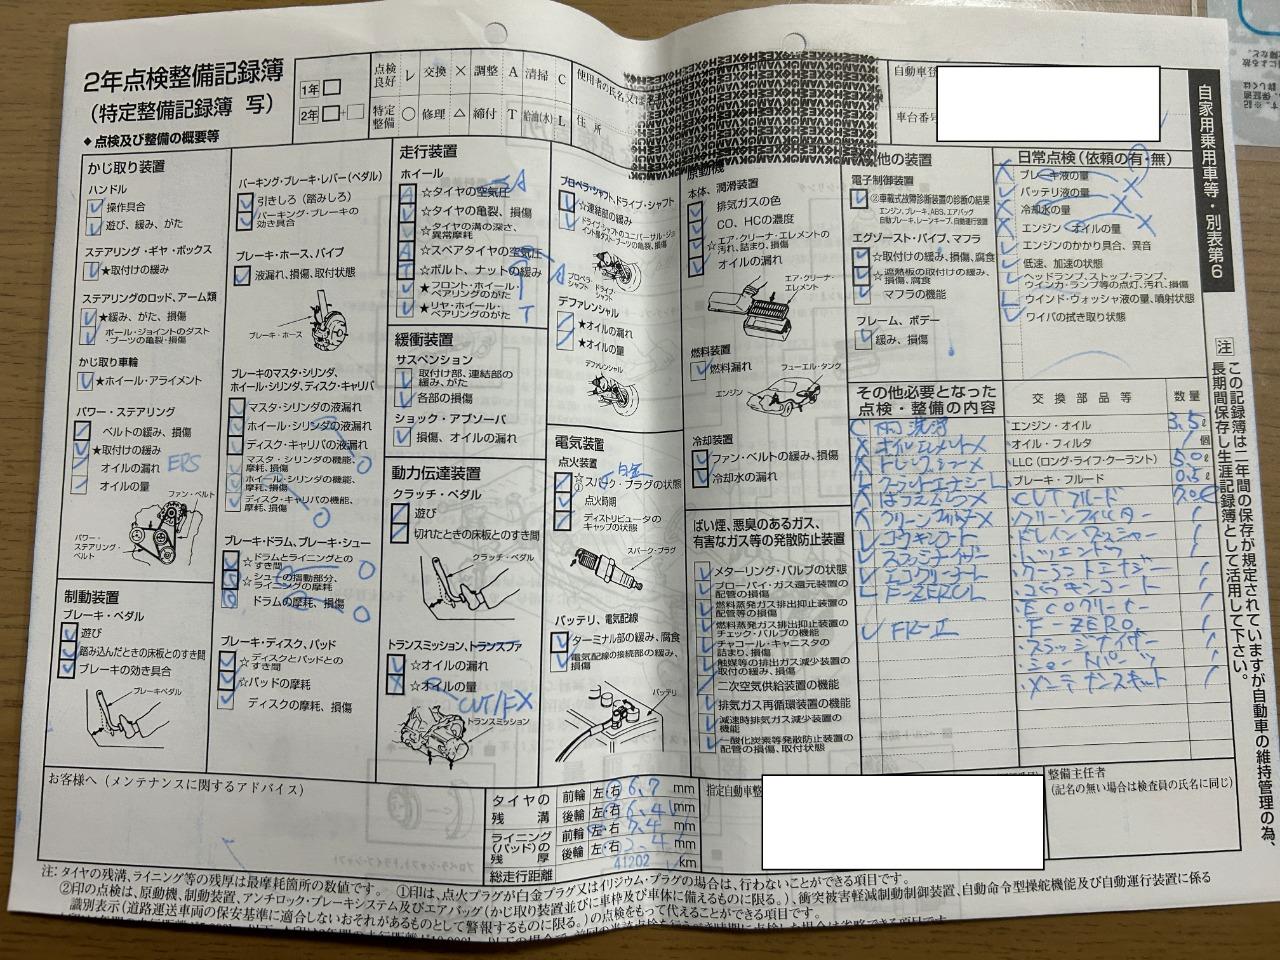 2年点検整備記録簿
(特定整備記録簿 写)
◆点検及び整備の概要等
1年
2年
点検良好 レ 交換 × 調整 A 清掃 C
特定整備 ○ 修理 △ 締付 T 給油(水) L
使用者の氏名又は
住所
自動車登
車台番号
自家用乗用車等・別表第6
かじ取り装置
ハンドル
操作具合
遊び、緩み、がた
ステアリング・ギヤ・ボックス
★取付けの緩み
ステアリングのロッド、アーム類
★緩み、がた、損傷
ボール・ジョイントのダスト・ブーツの亀裂・損傷
かじ取り車輪
★ホイール・アライメント
パワー・ステアリング
ベルトの緩み、損傷
★取付けの緩み
オイルの漏れ
オイルの量
ERS
ファン・ベルト
パワー・ステアリング・ベルト
制動装置
ブレーキ・ペダル
遊び
踏み込んだときの床板とのすき間
ブレーキの効き具合
ブレーキペダル
パーキング・ブレーキ・レバー(ペダル)
引きしろ(踏みしろ)
パーキング・ブレーキの効き具合
ブレーキ・ホース、パイプ
液漏れ、損傷、取付状態
ブレーキ・ホース
ブレーキのマスタ・シリンダ、ホイール・シリンダ、ディスク・キャリパ
マスタ・シリンダの液漏れ
ホイール・シリンダの液漏れ
ディスク・キャリパの液漏れ
マスタ・シリンダの機能、摩耗、損傷
ホイール・シリンダの機能、摩耗、損傷
ディスク・キャリパの機能、摩耗、損傷
ブレーキ・ドラム、ブレーキ・シュー
☆ドラムとライニングとのすき間
☆シューの摺動部分、ライニングの摩耗
ドラムの摩耗、損傷
ブレーキ・ディスク、パッド
☆ディスクとパッドとのすき間
☆パッドの摩耗
ディスクの摩耗、損傷
走行装置
ホイール
☆タイヤの空気圧
☆タイヤの亀裂、損傷
☆タイヤの溝の深さ、異常摩耗
☆スペアタイヤの空気圧
☆ボルト、ナットの緩み
★フロント・ホイール・ベアリングのがた
★リヤ・ホイール・ベアリングのがた
緩衝装置
サスペンション
取付け部、連結部の緩み、がた
各部の損傷
ショック・アブソーバ
損傷、オイルの漏れ
動力伝達装置
クラッチ・ペダル
遊び
切れたときの床板とのすき間
クラッチ・ペダル
トランスミッション、トランスファ
☆オイルの漏れ
☆オイルの量
トランスミッション
プロペラ・シャフト、ドライブ・シャフト
☆連結部の緩み
ドライブ・シャフトのユニバーサル・ジョイント部ダスト・ブーツの亀裂、損傷
プロペラ・シャフト
ドライブ・シャフト
デファレンシャル
★オイルの漏れ
★オイルの量
デファレンシャル
電気装置
点火装置
☆①スパーク・プラグの状態
白金
点火時期
ディストリビュータのキャップの状態
スパーク・プラグ
バッテリ、電気配線
ターミナル部の緩み、腐食
電気配線の接続部の緩み、損傷
バッテリ
原動機
本体、潤滑装置
排気ガスの色
CO、HCの濃度
☆エア・クリーナ・エレメントの汚れ、詰まり、損傷
オイルの漏れ
エア・クリーナ・エレメント
燃料装置
燃料漏れ
フューエル・タンク
エンジン
冷却装置
ファン・ベルトの緩み、損傷
冷却水の漏れ
ばい煙、悪臭のあるガス、有害なガス等の発散防止装置
メターリング・バルブの状態
ブローバイ・ガス還元装置の配管の損傷
燃料蒸発ガス排出抑止装置の配管等の損傷
燃料蒸発ガス排出抑止装置のチェック・バルブの機能
チャコール・キャニスタの詰まり、損傷
触媒等の排出ガス減少装置の取付の緩み、損傷
二次空気供給装置の機能
排気ガス再循環装置の機能
減速時排気ガス減少装置の機能
一酸化炭素等発散防止装置の配管の損傷、取付状態
の他の装置
電子制御装置
②車載式故障診断装置の診断の結果
エンジン、ブレーキ、ABS、エアバッグ
自動ブレーキ、レーンキープ、自動運行装置
エグゾースト・パイプ、マフラ
☆取付けの緩み、損傷、腐食
☆遮熱板の取付けの緩み、損傷、腐食
マフラの機能
フレーム、ボデー
緩み、損傷
日常点検(依頼の有・無)
ブレーキ液の量
バッテリ液の量
冷却水の量
エンジン・オイルの量
エンジンのかかり具合、異音
低速、加速の状態
ヘッドランプ、ストップ・ランプ、ウインカ・ランプ等の点灯、汚れ、損傷
ウインド・ウォッシャ液の量、噴射状態
ワイパの拭き取り状態
その他必要となった点検・整備の内容
オイルエレメント
エコクリーナー
F-ZERO
FK-II
交換部品等 数量
エンジン・オイル 3.5ℓ
オイル・フィルタ 1個
LLC(ロング・ライフ・クーラント) 5.0ℓ
ブレーキ・フルード 0.5ℓ
CVTフルード
クリーンフィルター 1
ドレインワッシャー 1
ECOクリーナー 1
F-ZERO 1
メンテナンスキット 1
注 この記録簿は二年間の保存が規定されていますが自動車の維持管理の為、長期間保存し生涯記録簿として活用して下さい。
お客様へ(メンテナンスに関するアドバイス)
タイヤの残溝 前輪 左・右 6.7 mm
後輪 左・右 6.4 mm
ライニング(パッド)の残厚 前輪 左・右 mm
後輪 左・右 mm
総走行距離 41202 km
指定自動車整
整備主任者
(記名の無い場合は検査員の氏名に同じ)
注:タイヤの残溝、ライニング等の残厚は最摩耗箇所の数値です。 ①印は、点火プラグが白金プラグ又はイリジウム・プラグの場合は、行わないことができる項目です。
②印の点検は、原動機、制動装置、アンチロック・ブレーキシステム及びエアバッグ(かじ取り装置並びに車枠及び車体に備えるものに限る。)、衝突被害軽減制動制御装置、自動命令型操舵機能及び自動運行装置に係る
識別表示(道路運送車両の保安基準に適合しないおそれがあるものとして警報するものに限る。)の点検をもって代えることができる項目です。